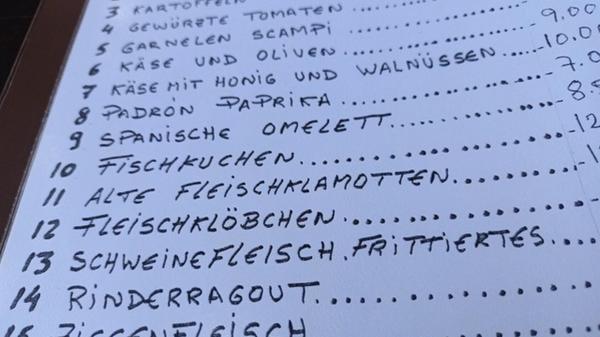 3 KARTOFFELN
4 GEWÜRZTE TOMATEN
5 GARNELEN SCAMPI
6 KÄSE UND OLIVEN 9.00
7 KÄSE MIT HONIG UND WALNÜSSEN 10.00
8 PADRÓN PAPRIKA
9 SPANISCHE OMELETT
10 FISCHKUCHEN
11 ALTE FLEISCHKLAMOTTEN
12 FLEISCHKLÖBCHEN
13 SCHWEINEFLEISCH.FRITTIERTES
14 RINDERRAGOUT
15 ZIEGENFLEISCH